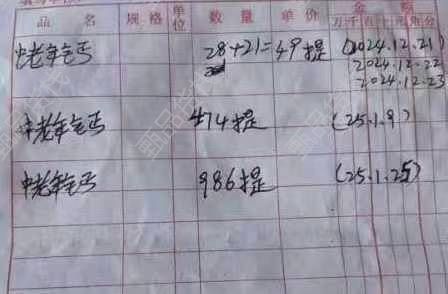 品 名 规格 单位 数量 单价 金额
万千百十元角分
中老年钙 28+21=49提 (2024.12.21)
2024.12.22
2024.12.23
中老年钙 474提 (25.1.9)
中老年钙 986提 (25.1.25)
甄品货代